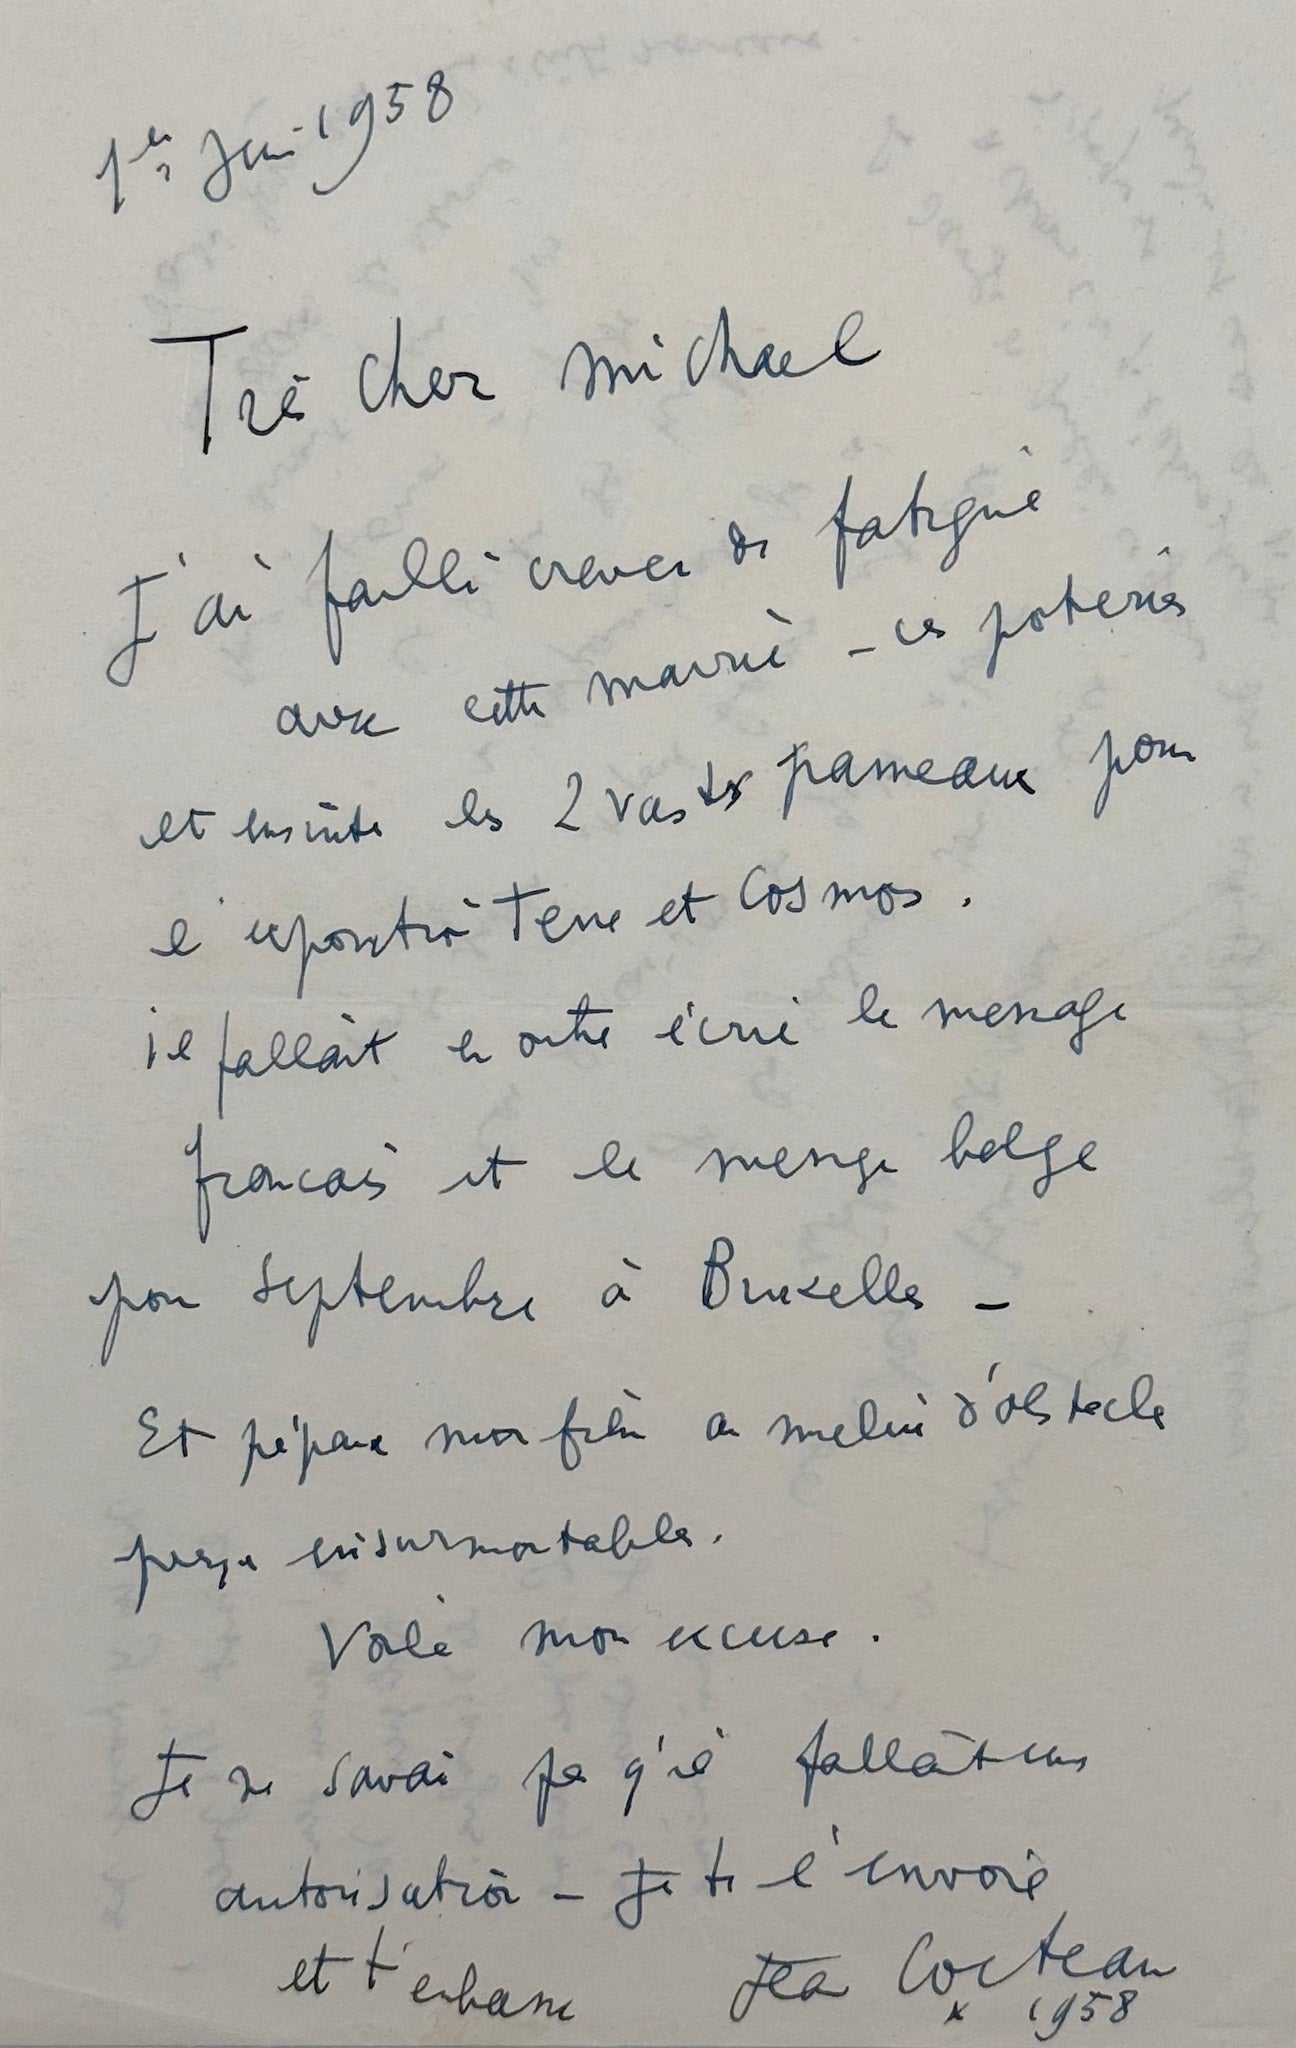 1er Juin 1958
Très cher Michael
J'ai failli crever de fatigue
avec cette mairie - ces poteries
et ensuite les 2 vastes panneaux pour
l'exposition Terre et Cosmos.
il fallait en outre écrire le message
français et le message belge
pour Septembre à Bruxelles -
Et préparer mon film au milieu d'obstacles
presque insurmontables.
Voilà mon excuse.
Je ne savais pas qu'il fallait une
autorisation - Je te l'envoie
et t'embrasse Jean Cocteau
1958